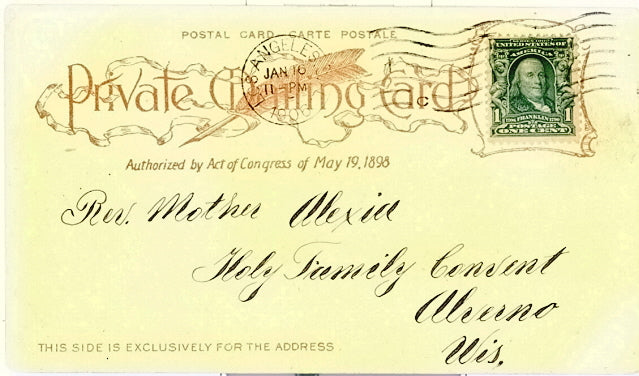 POSTAL CARD - CARTE POSTALE
LOS ANGELES
JAN 16
11 - PM
1906
C
Private Mailing Card
SERIES 1902
UNITED STATES OF
AMERICA
1 1706 FRANKLIN 1790 1
POSTAGE
ONE CENT
Authorized by Act of Congress of May 19, 1898
Rev. Mother Alexia
Holy Family Convent
Alverno
Wis.
THIS SIDE IS EXCLUSIVELY FOR THE ADDRESS.